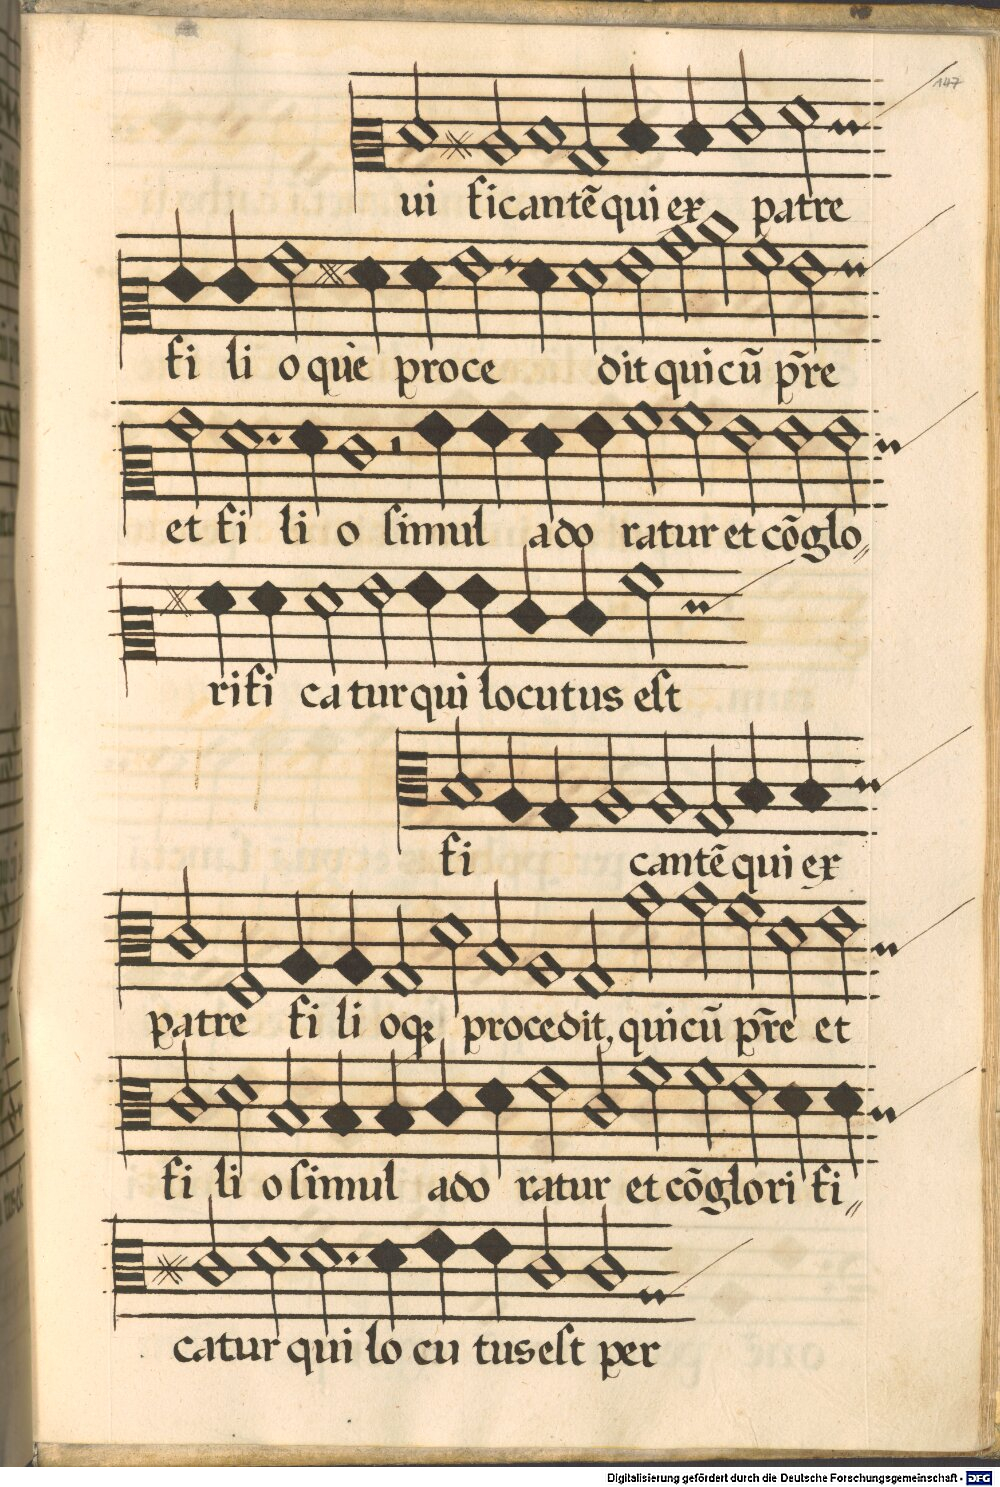 147
ui ficantē qui ex patre
fi li o que proce dit qui cū p̄re
et fi li o simul ado ratur et cōglo
rifi ca tur qui locutus est
fi cantē qui ex
patre fi li oqꝫ procedit, qui cū p̄re et
fi li o simul ado ratur et cōglori fi
catur qui lo cu tus est per
Digitalisierung gefördert durch die Deutsche Forschungsgemeinschaft - DFG